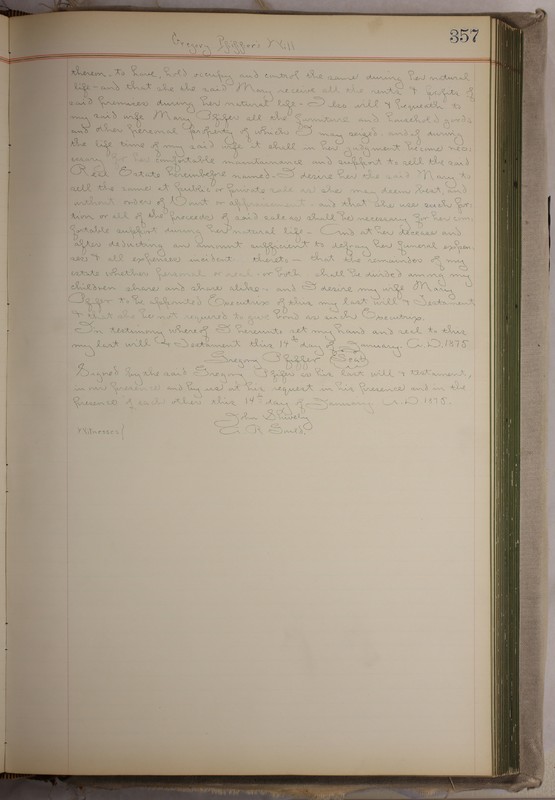 357
Gregory Pfiffer's Will
therein, to have, hold occupy and control the same during her natural
life - and that she the said Mary receive all the rents & profits of
said premises during her natural life - I also will & bequeath to
my said wife Mary Pfiffer all the furniture and household goods
and other personal property of which I may seized - and if during
the life time of my said wife it shall in her judgment become nec-
essary for her comfortable maintenance and support to sell the said
Real Estate hereinbefore named - I desire her the said Mary to
sell the same at public or private sale as she may deem best, and
without order of Court or appraisement - and that she use such por-
tion or all of the proceeds of said sale as shall be necessary for her com-
fortable support during her natural life - And at her decease and
after deducting an amount sufficient to defray her funeral expen-
ses & all expenses incident thereto - that the remainder of my
estate whether personal or real, or both shall be divided among my
children share and share alike - and I desire my wife Mary
Pfiffer to be appointed Executrix of this my last will & Testament
& that she be not required to give bond as such Executrix.
In testimony whereof I hereunto set my hand and seal to this
my last will & Testament this 14th day of January A.D. 1875
Gregory Pfiffer (Seal)
Signed by the said Gregory Pfiffer as his last will & testament,
in our presence and by us at his request in his presence and in the
presence of each other this 14th day of January A.D. 1875.
John Shively
Witnesses